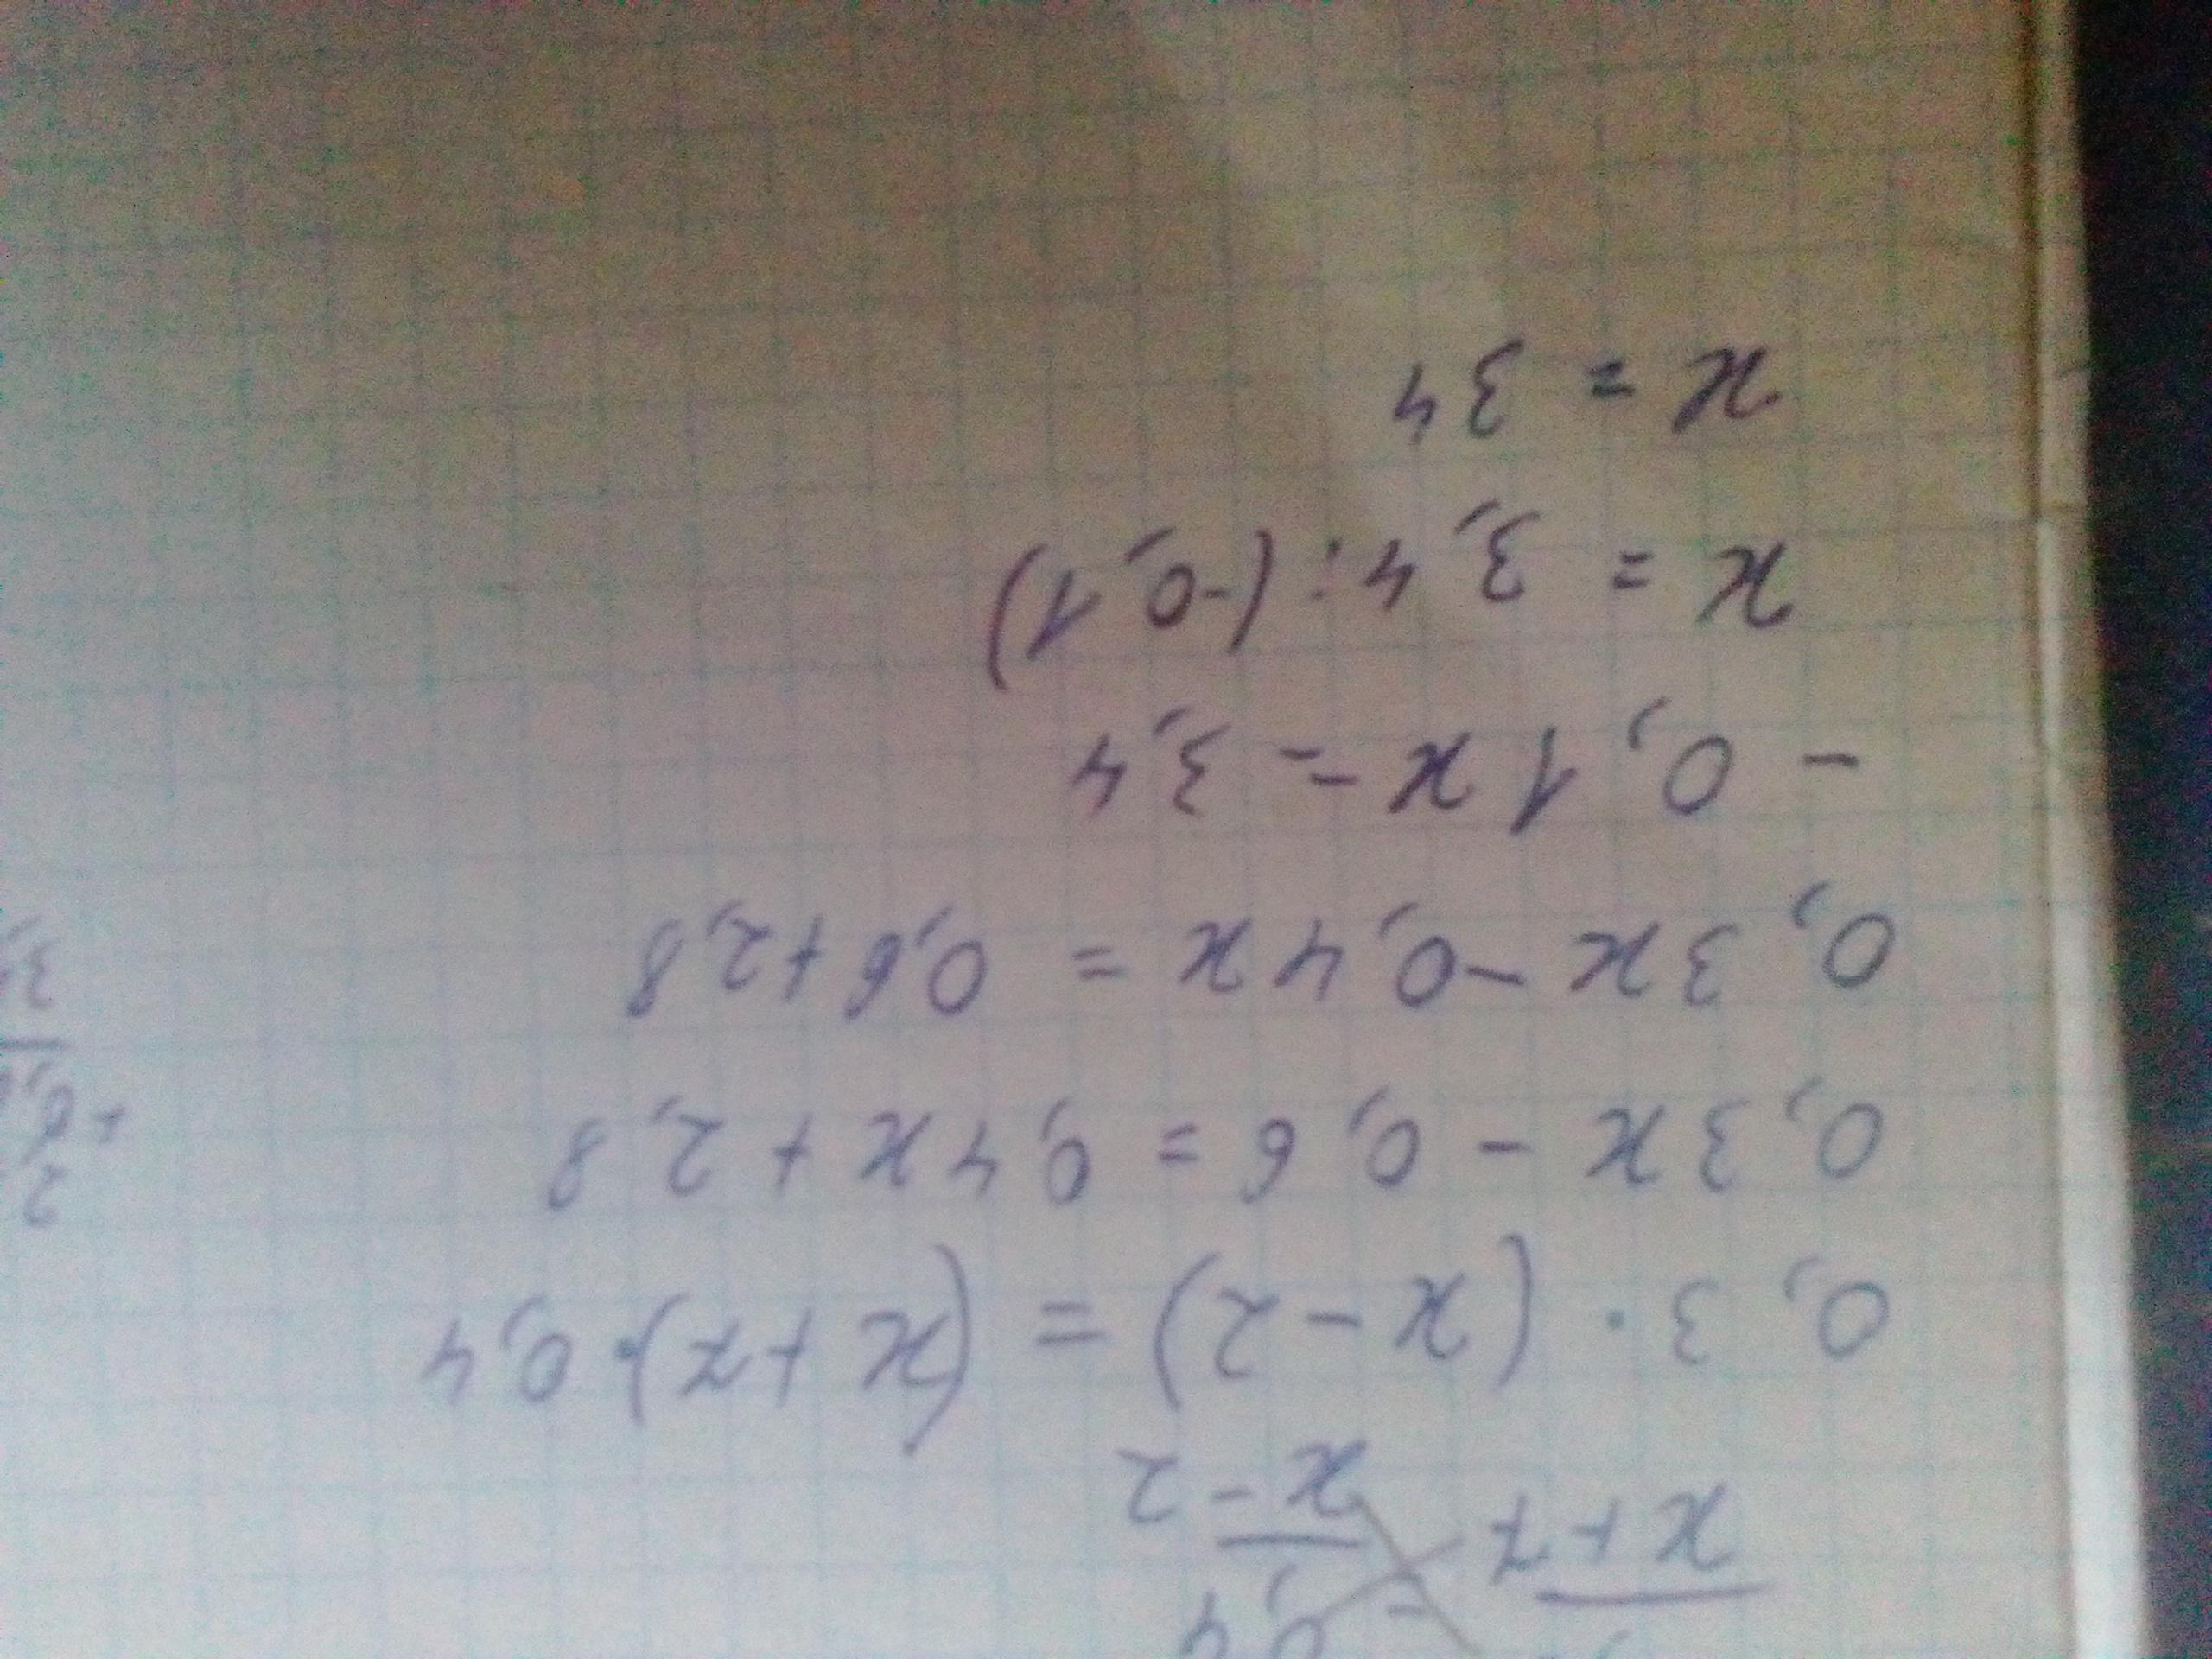 = 0,4
x+7 x-2
0,3 · (x-2) = (x+7)·0,4
0,3x - 0,6 = 0,4x + 2,8
0,3x -0,4x = 0,6+2,8
- 0,1x = 3,4
x = 3,4:(-0,1)
x = 34
2
+0,
3,